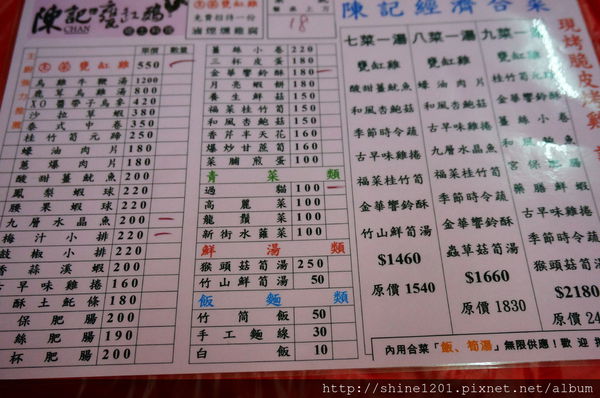 陳記
甕缸雞
CHAN
免費招待一份
滷煙燻雞腐
18
單價 數量
甕缸雞 550
烏雞牛鞭湯 1200
龍草烏雞湯 800
XO醬帶子烏參 420
沙拉草蝦 380
泰式中卷 350
桂竹筍元蹄 290
蠔油肉片 180
蔥爆肉片 180
酸甜薑魷魚 220
鳳梨蝦球 220
腰果蝦球 220
九層水晶魚 200
梅汁小排 220
豉椒小排 220
香蒜溪蝦 200
古早味雞捲 120
酥土魠條 180
保肥腸 200
絲肥腸 190
杯肥腸 200
薑絲小卷 220
三杯皮蛋 180
金華響鈴酥 160
月亮蝦餅 180
養生鮮菇 150
福菜桂竹筍 150
和風杏鮑菇 150
香芹半天花 160
爆炒甘蔗筍 150
菜脯煎蛋 100
青菜類
過貓 100
高麗菜 100
龍鬚菜 100
新街水蓮菜 100
鮮湯類
猴頭菇筍湯 250
竹山鮮筍湯 50
飯麵類
竹筒飯 50
手工麵線 30
白飯 10
陳記經濟合菜
七菜一湯
甕缸雞
酸甜薑魷魚
和風杏鮑菇
季節時令蔬
古早味雞捲
福菜桂竹筍
金華響鈴酥
竹山鮮筍湯
$1460
原價 1540
八菜一湯
甕缸雞
蠔油肉片
和風杏鮑菇
古早味雞捲
九層水晶魚
季節時令蔬
福菜桂竹筍
金華響鈴酥
蟲草菇筍湯
$1660
原價 1830
九菜一湯
甕缸雞
桂竹筍元蹄
金華響鈴酥
薑絲小卷
和風鮑菇
宮保肥腸
藥膳鮮蝦
古早味雞捲
季節時令蔬
猴頭菇筍湯
$2180
原價 24
現烤脆皮
內用合菜「飯、筍湯」無限供應!歡迎
http://shine1201.pixnet.net/album